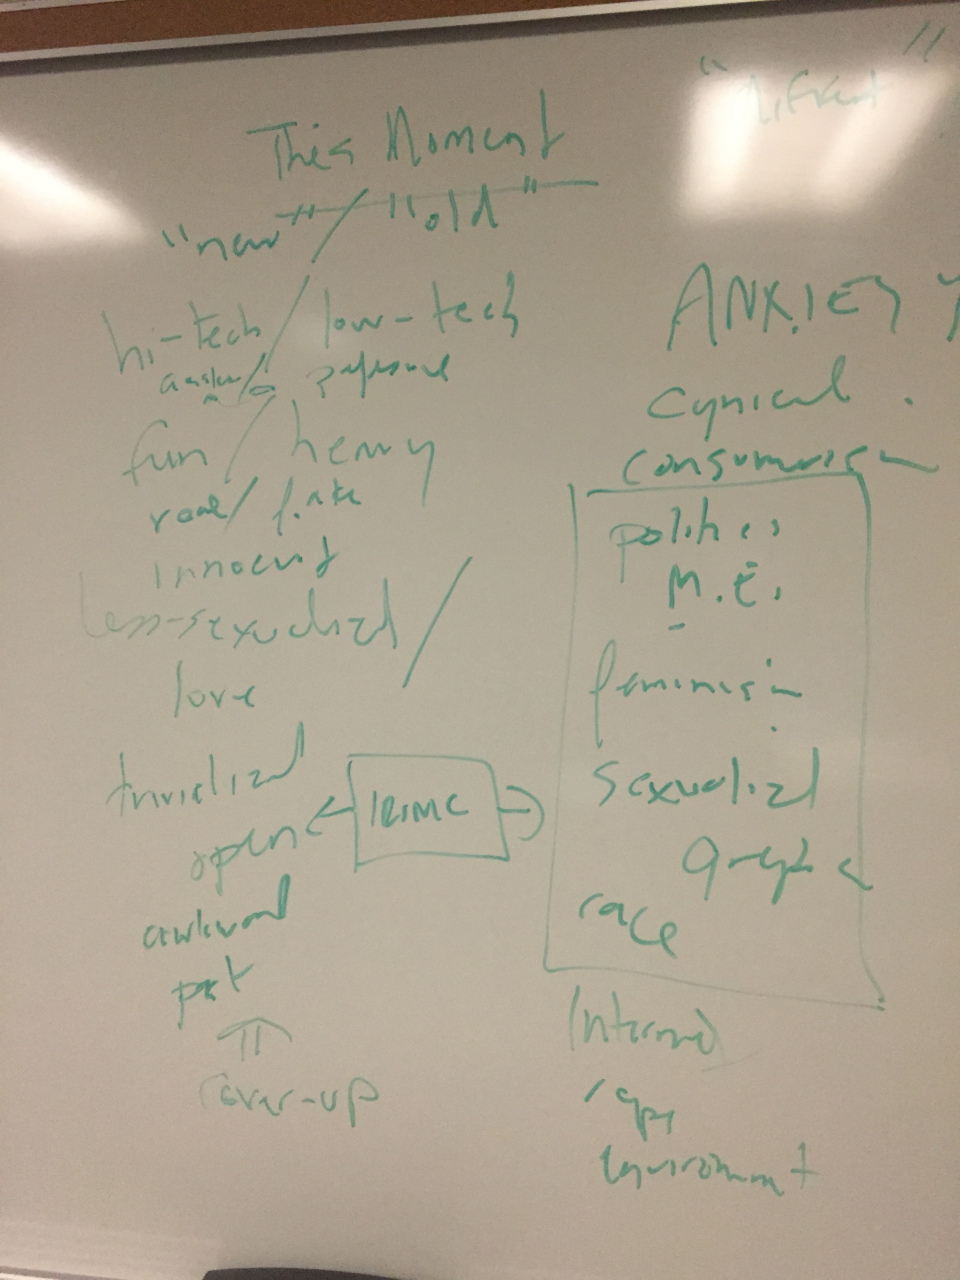 This Moment
"new" / "old"
hi-tech / low-tech
fun / heavy
real / fake
innocent
less-sexualized /
love
trivialized
open
awkward
cover-up
ANXIETY
cynical
consumerism
politics
M.E.
feminism
sexualized
race
Internet
environment